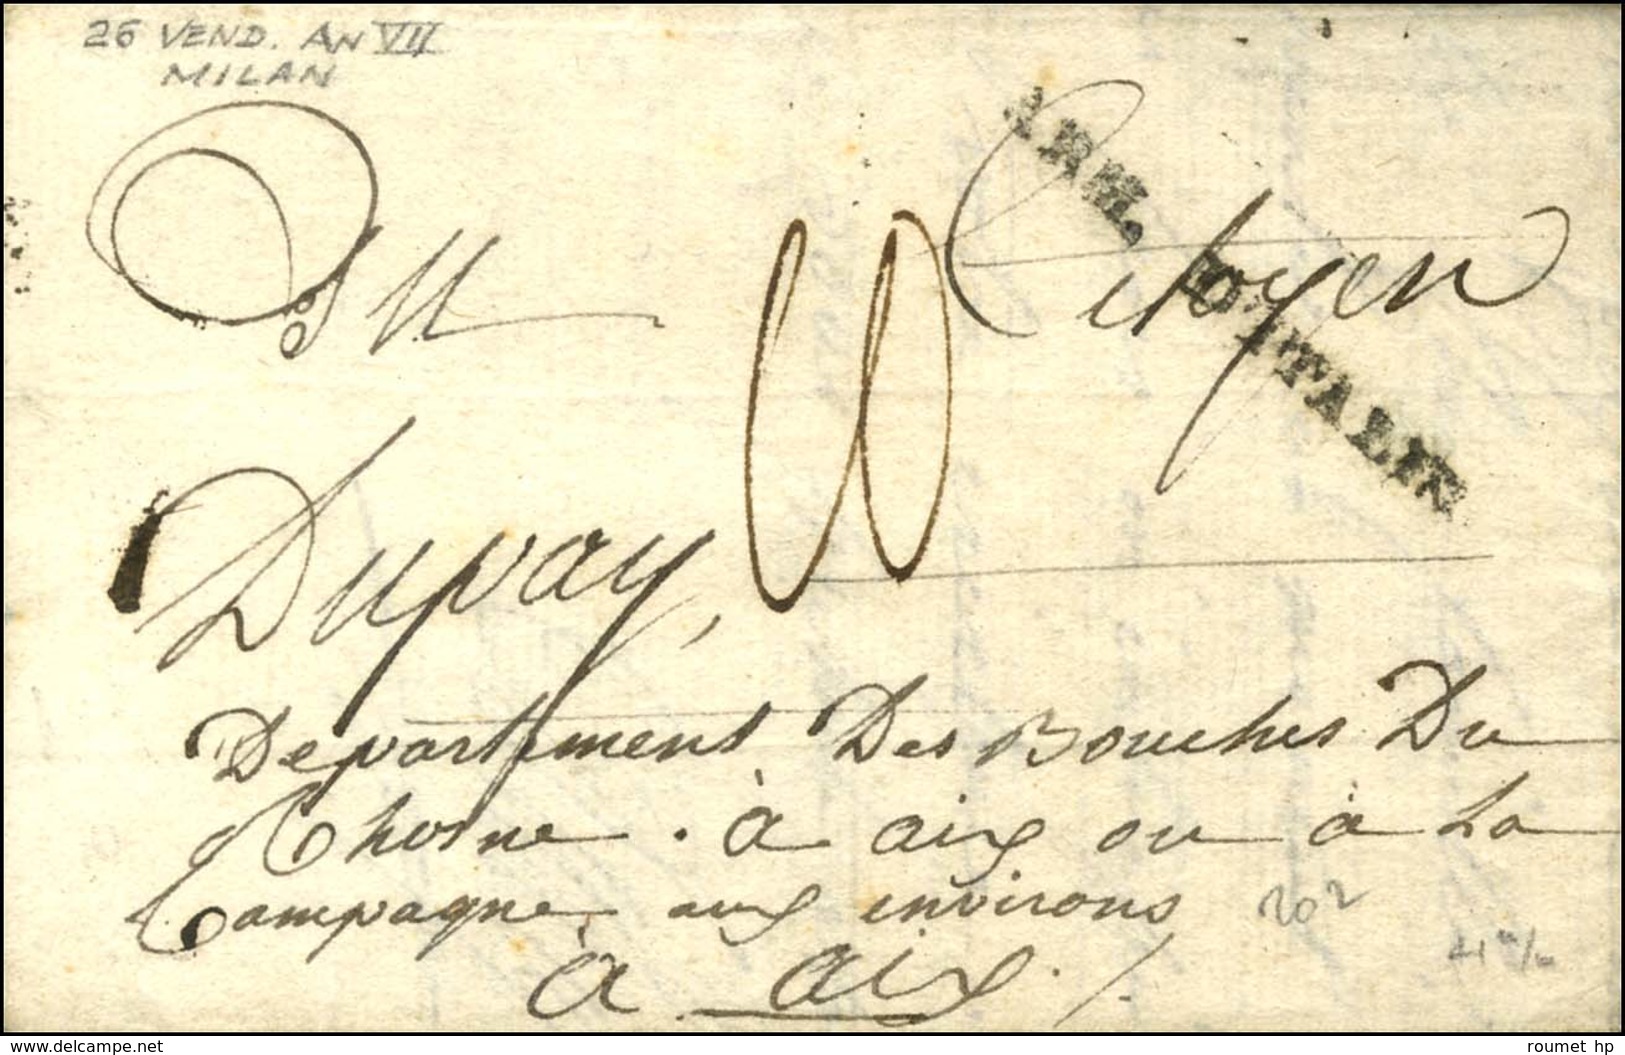 26 VEND. AN VII
MILAN
ARM. D'ITALIE
Au Citoyen
10
Dupay,
Departement Des Bouches Du
Rhosne. à aix ou à La
Campagne, aux environs
à aix./.
202
delcampe.net
roumet hp